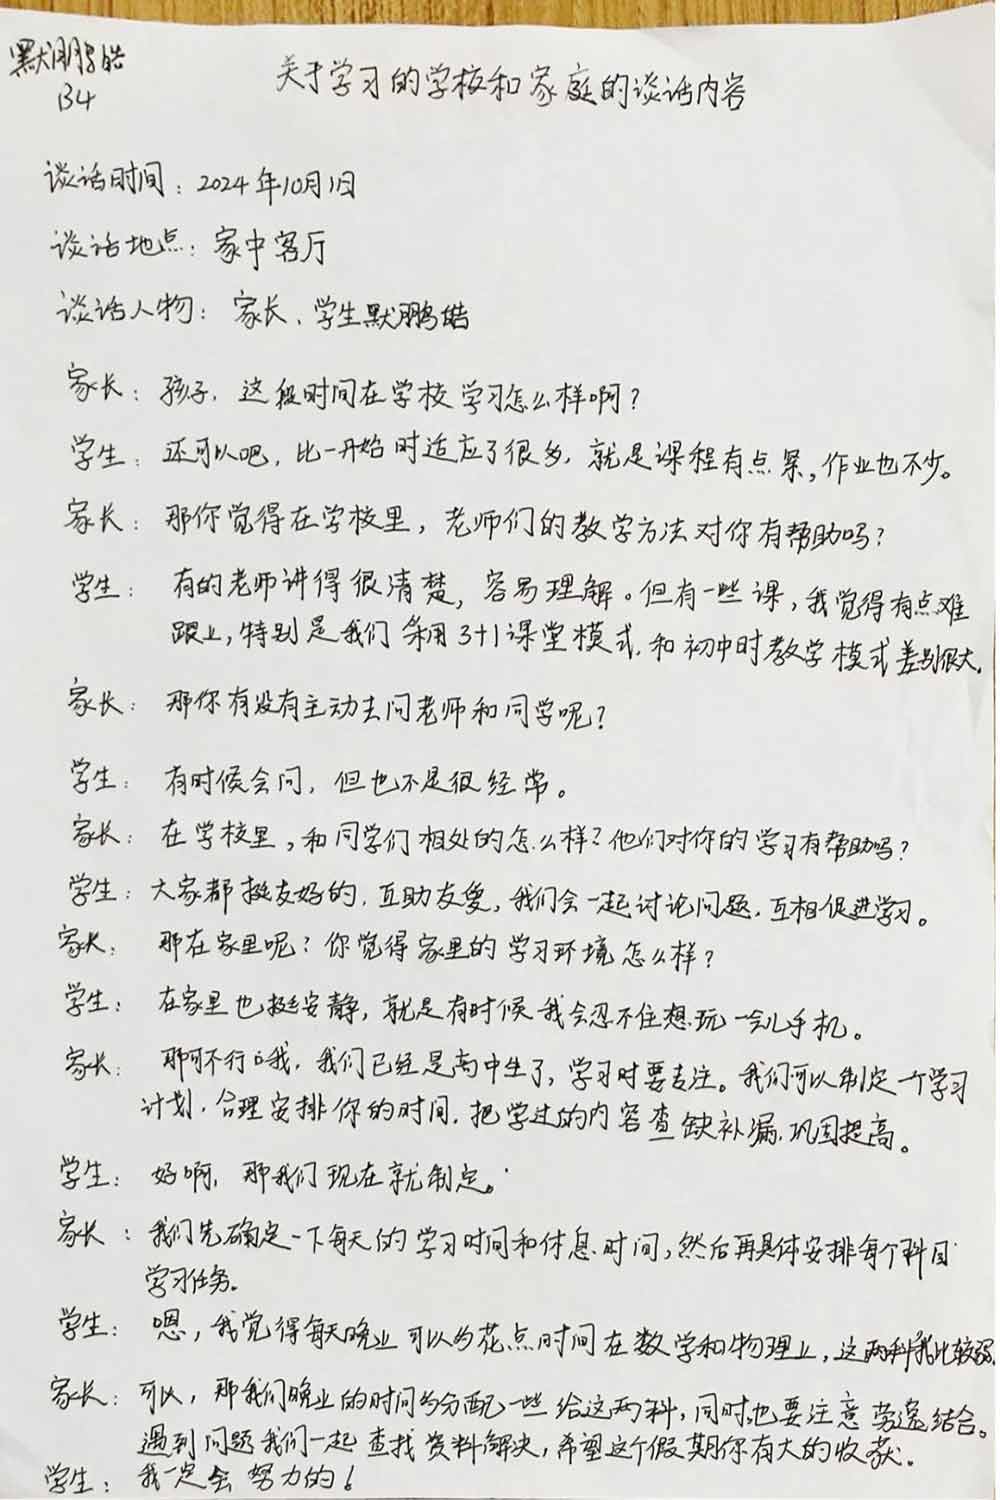 默鹏皓
134
关于学习的学校和家庭的谈话内容
谈话时间：2024年10月1日
谈话地点：家中客厅
谈话人物：家长、学生默鹏皓
家长：孩子，这段时间在学校学习怎么样啊？
学生：还可以吧，比一开始时适应了很多，就是课程有点累，作业也不少。
家长：那你觉得在学校里，老师们的教学方法对你有帮助吗？
学生：有的老师讲得很清楚，容易理解。但有一些课，我觉得有点难
跟上，特别是我们采用3+1课堂模式，和初中时教学模式差别很大。
家长：那你有没有主动去问老师和同学呢？
学生：有时候会问，但也不是很经常。
家长：在学校里，和同学们相处的怎么样？他们对你的学习有帮助吗？
学生：大家都挺友好的，互助友爱，我们会一起讨论问题，互相促进学习。
家长：那在家里呢？你觉得家里的学习环境怎么样？
学生：在家里也挺安静，就是有时候我会忍不住想玩一会儿手机。
家长：那可不行哦，我们已经是高中生了，学习时要专注。我们可以制定一个学习
计划，合理安排你的时间，把学过的内容查缺补漏，巩固提高。
学生：好啊，那我们现在就制定。
家长：我们先确定一下每天的学习时间和休息时间，然后再具体安排每个科目
学习任务。
学生：嗯，我觉得每天晚上可以多花点时间在数学和物理上，这两科我比较弱。
家长：可以，那我们晚上的时间多分配一些给这两科，同时也要注意劳逸结合。
遇到问题我们一起查找资料解决，希望这个假期你有大的收获。
学生：我一定会努力的！